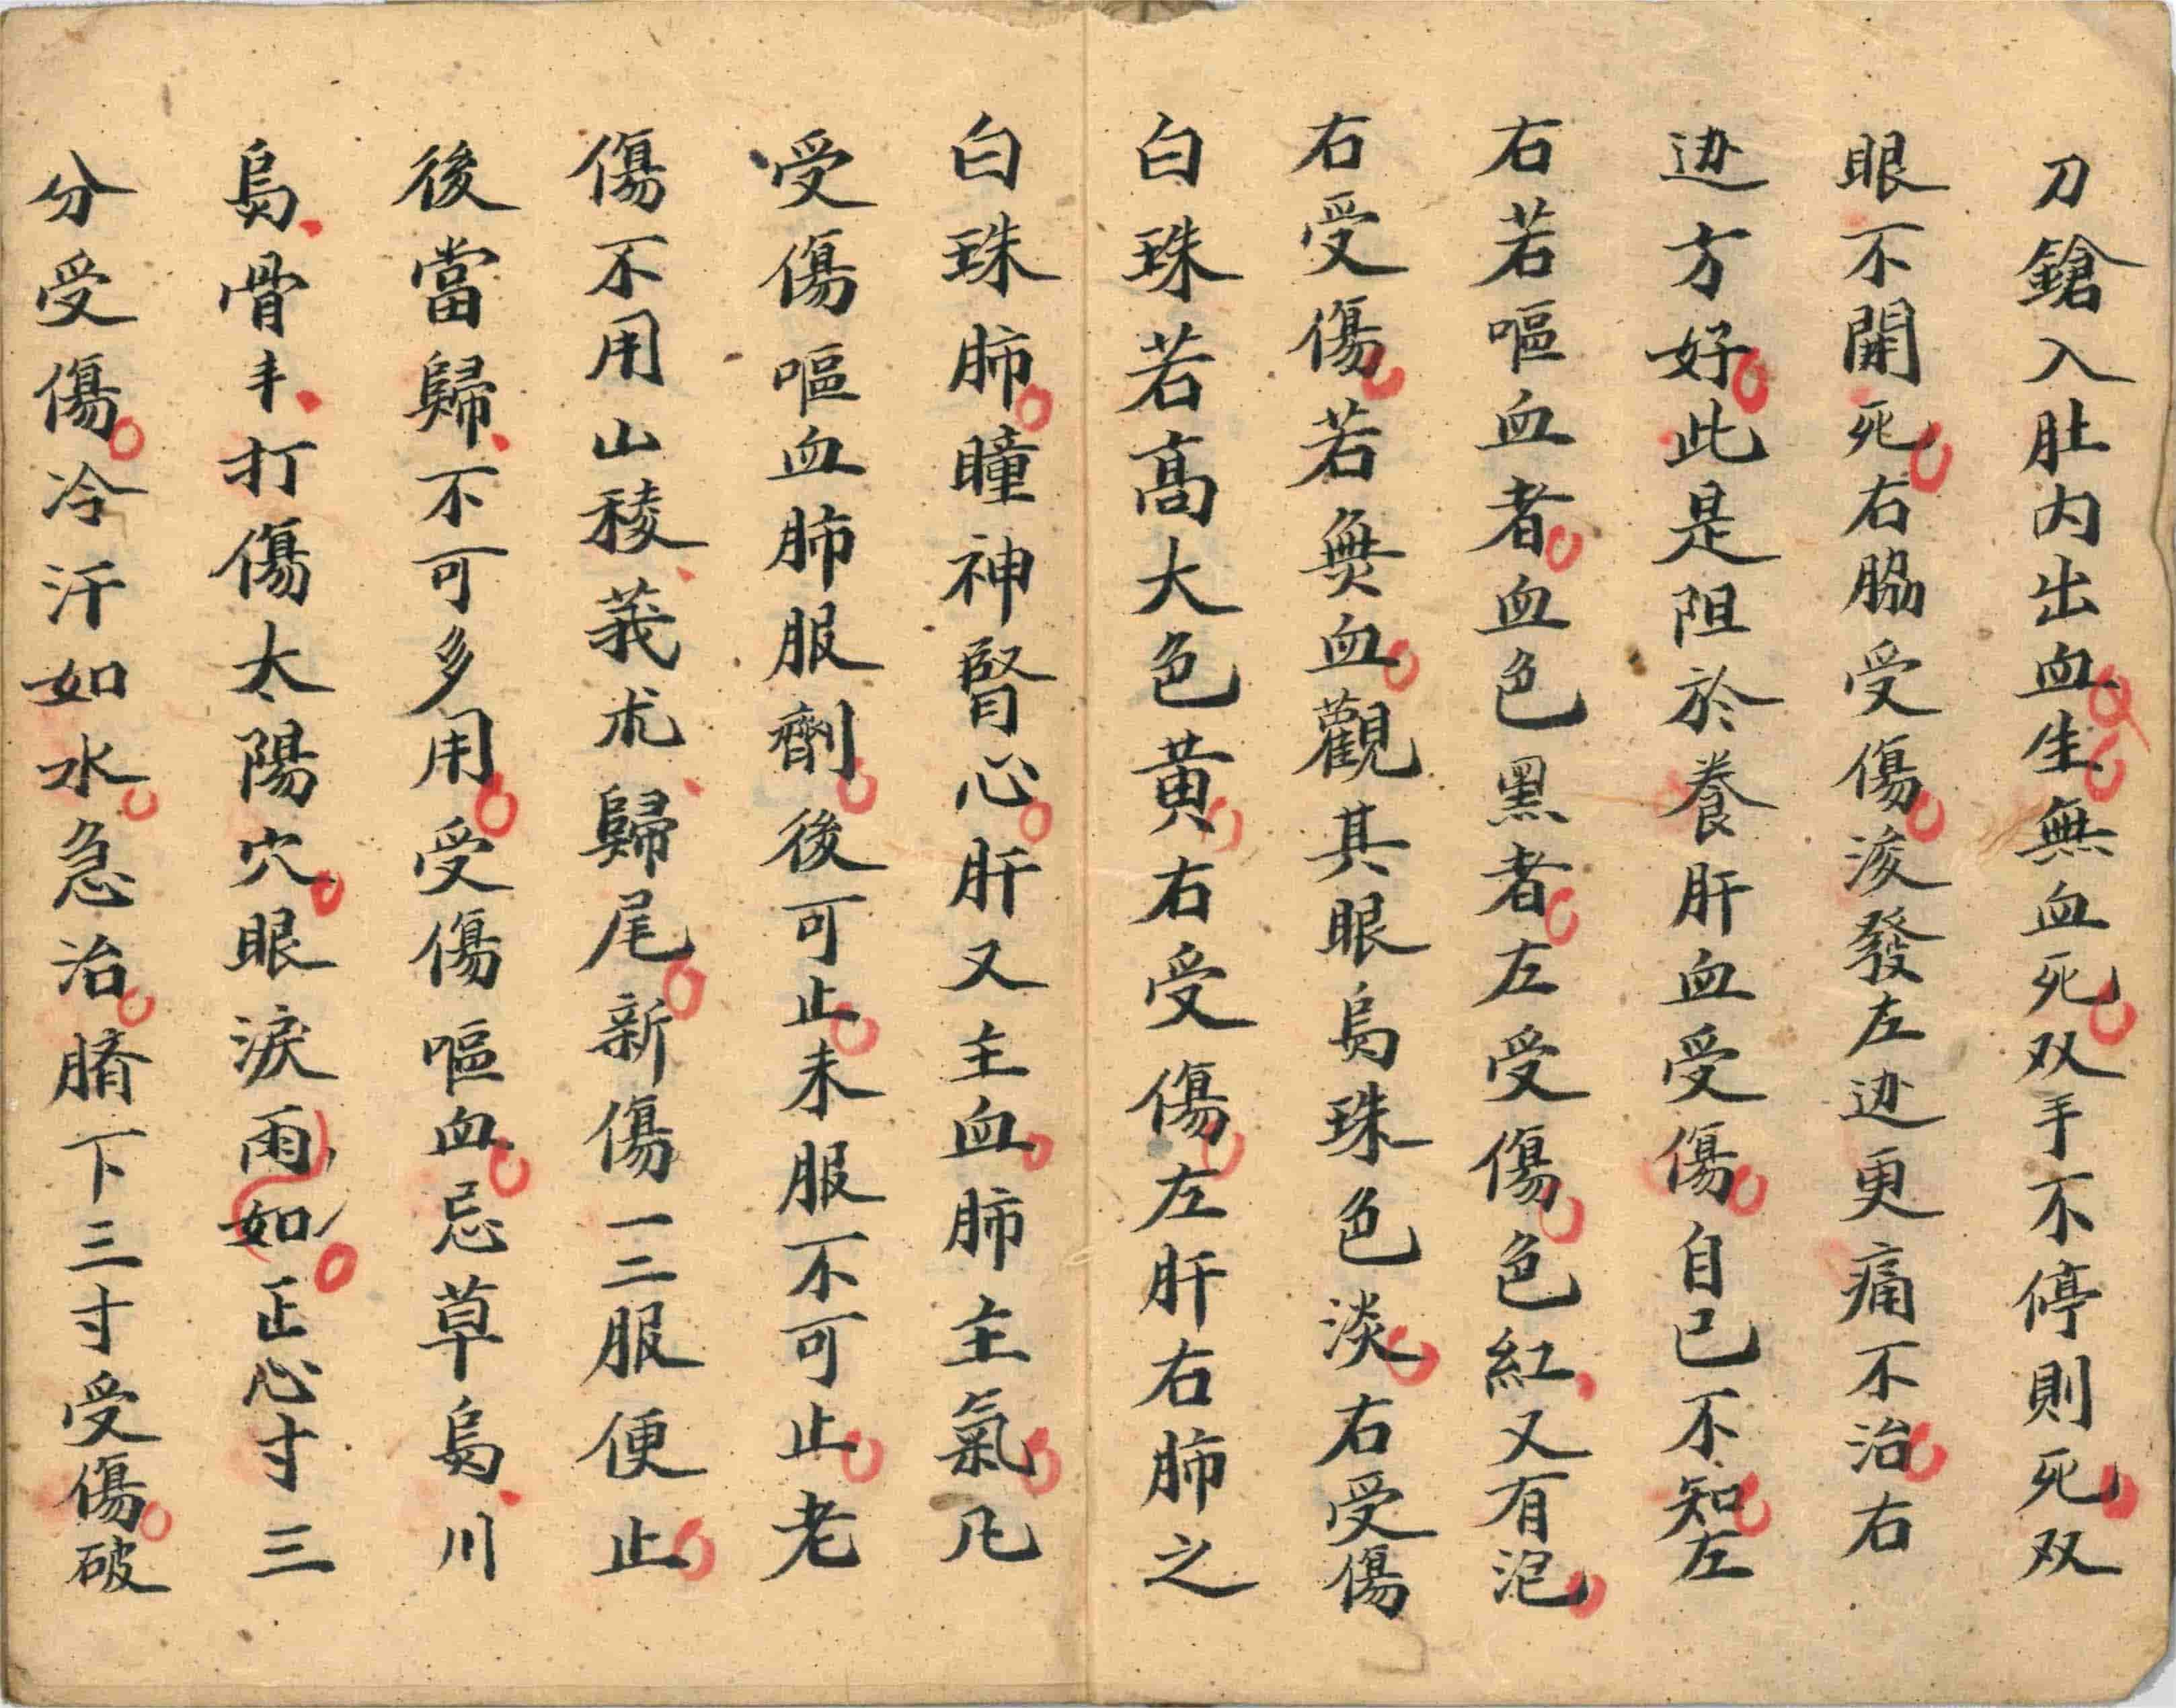 刀鎗入肚内出血生無血死双手不停則死双
眼不開死右脇受傷後發左边更痛不治右
边方好此是阻於養肝血受傷自己不知左
右若嘔血者血色黑者左受傷色紅又有泡
右受傷若無血觀其眼烏珠色淡右受傷
白珠若高大色黄右受傷左肝右肺之
白珠肺瞳神腎心肝又主血肺主氣凡
受傷嘔血肺服劑後可止未服不可止老
傷不用山稜莪朮歸尾新傷一二服便止
後當歸不可多用受傷嘔血忌草烏川
烏骨丰打傷太陽穴眼淚雨如正心寸三
分受傷冷汗如水急治臍下三寸受傷破